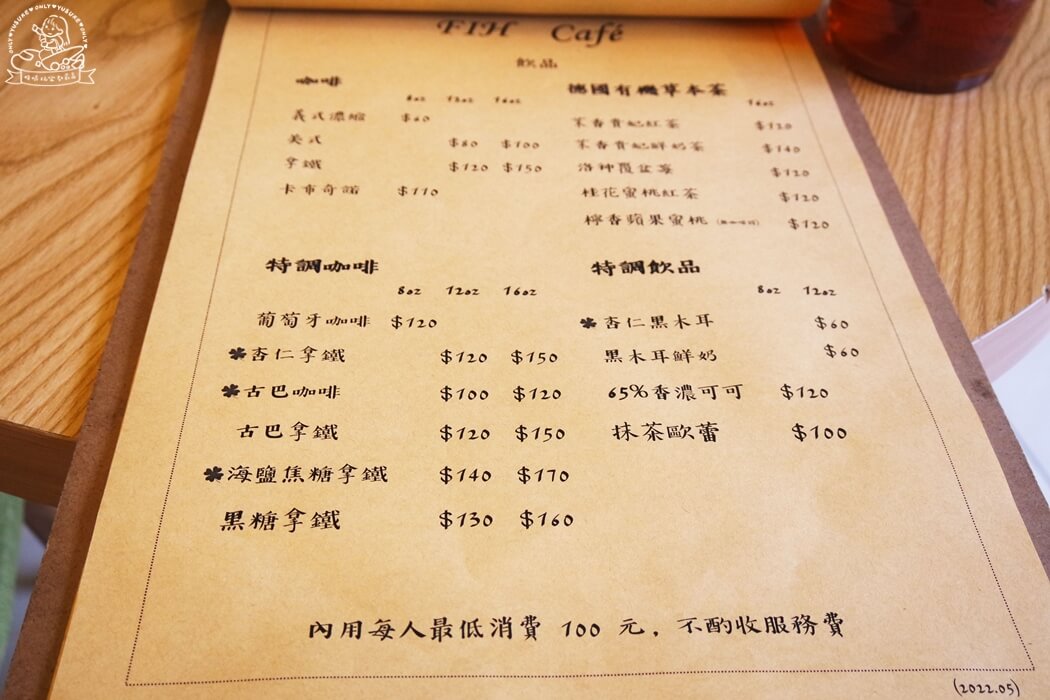 ONLY♥YUSUKE♥ONLY♥YUSUKE♥ONLY
FIH Café
飲品
咖啡
8oz 12oz 16oz
義式濃縮 $60
美式 $80 $100
拿鐵 $120 $150
卡布奇諾 $110
德國有機草本茶
16oz
茉香貴妃紅茶 $120
茉香貴妃鮮奶茶 $140
洛神覆盆莓 $120
桂花蜜桃紅茶 $120
檸香蘋果蜜桃 $120
特調咖啡
8oz 12oz 16oz
葡萄牙咖啡 $120
杏仁拿鐵 $120 $150
古巴咖啡 $100 $120
古巴拿鐵 $120 $150
海鹽焦糖拿鐵 $140 $170
黑糖拿鐵 $130 $160
特調飲品
8oz 12oz
杏仁黑木耳 $60
黑木耳鮮奶 $60
65%香濃可可 $120
抹茶歐蕾 $100
內用每人最低消費 100 元，不酌收服務費
(2022.05)